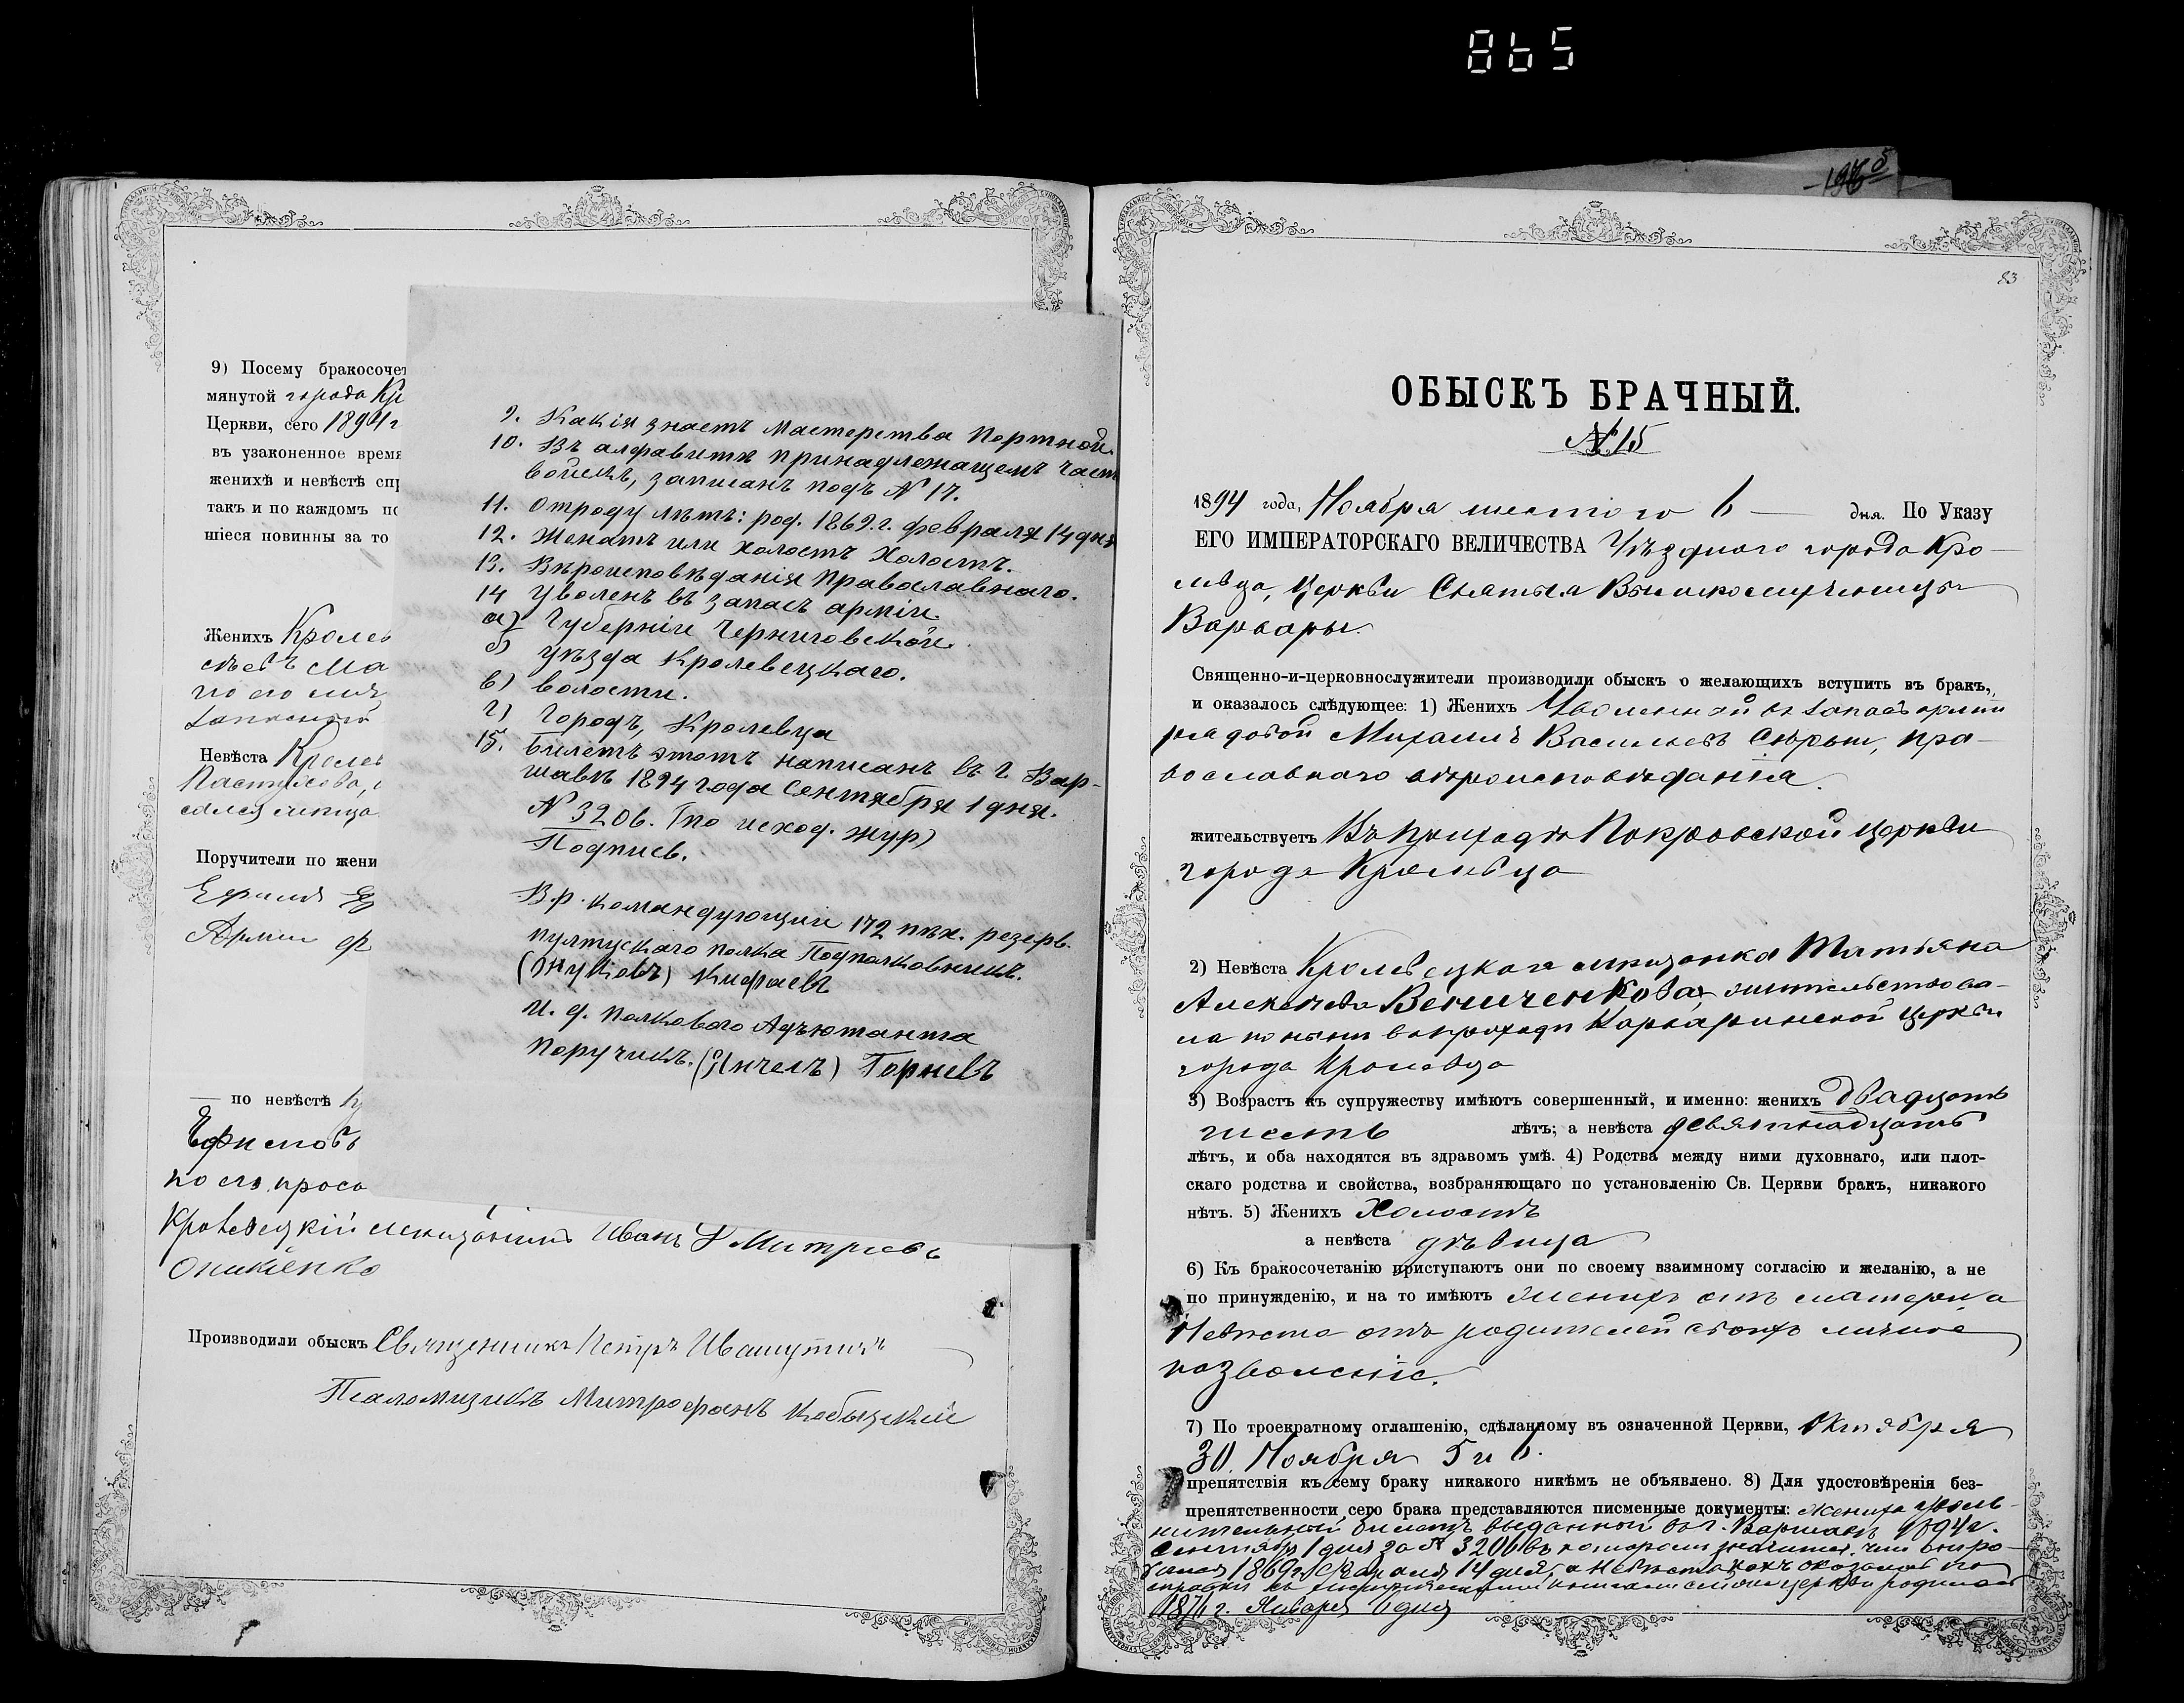 865
9) Посему бракосочет
мянутой города Кр
Церкви, сего 1894 г
въ узаконенное время
женихѣ и невѣстѣ спр
такъ и по каждомъ по
шіеся повинны за то
Женихъ Кролев
Невѣста Кролев
Поручители по жени
по невѣстѣ
Ефимовъ
по его прось
Кролевецкій мещанинъ Иванъ Дмитріевъ
Оникіенко
Производили обыскъ Священникъ Петръ Ивашутичъ
Псаломщикъ Митрофанъ Кобыщкій
9. Какія знаетъ мастерства Портной.
10. Въ алфавитѣ принадлежащемъ част
войскъ, записанъ подъ № 17.
11. Отроду лѣтъ: род. 1869 г. февраля 14 дня
12. Женатъ или холостъ Холостъ.
13. Вѣроисповѣданія Православнаго.
14 Уволенъ въ запасъ арміи.
а) Губерніи Черниговской.
б) уѣзда Кролевецкаго.
в) волости.
г) Городъ, Кролевца
15. Билетъ этотъ написанъ въ г. Вар-
шавѣ 1894 года Сентября 1 дня.
№ 3206. (по исход. жур)
Подпись.
В. р. командующій 172 пѣх. резерв.
пултускаго полка Подполковникъ.
(Жуковъ) Кифаевъ
И. д. полкового Адъютанта
Поручикъ. (Янчелъ) Горневъ
196 5
83
ОБЫСКЪ БРАЧНЫЙ.
№ 15
1894 года, Ноября шестого 6 — дня. По Указу
ЕГО ИМПЕРАТОРСКАГО ВЕЛИЧЕСТВА Уѣзднаго города Кро-
левца, Церкви Святыя Великомученицы
Варвары.
Священно-и-церковнослужители производили обыскъ о желающихъ вступить въ бракъ,
и оказалось слѣдующее: 1) Женихъ Уволенной въ запасъ арміи
рядовой Михаилъ Васильевъ Сѣрый, пра-
вославнаго вѣроисповѣданія.
жительствуетъ Въ приходѣ Покровской церкви
города Кролевца
2) Невѣста Кролевецкая мещанка Татьяна
Алексѣева Величенкова, жительствова-
ла по нынѣ въ приходѣ Варваринской церкви
города Кролевца
3) Возрастъ къ супружеству имѣютъ совершенный, и именно: женихъ двадцать
шесть лѣтъ; а невѣста девятнадцать
лѣтъ, и оба находятся въ здравомъ умѣ. 4) Родства между ними духовнаго, или плот-
скаго родства и свойства, возбраняющаго по установленію Св. Церкви бракъ, никакого
нѣтъ. 5) Женихъ Холостъ
а невѣста дѣвица
6) Къ бракосочетанію приступаютъ они по своему взаимному согласію и желанію, а не
по принужденію, и на то имѣютъ женихъ отъ матери, а
Невѣста отъ родителей своихъ личное
позволеніе.
7) По троекратному оглашенію, сдѣланному въ означенной Церкви, Октября
30. Ноября 5 и 6.
препятствія къ сему браку никакого никѣмъ не объявлено. 8) Для удостовѣренія без-
препятственности сего брака представляются писменные документы: жениха уволь-
нительный билетъ выданный въ г. Варшавѣ 1894 г.
Сентября 1 дня за № 3206 въ которомъ значится, что онъ ро-
1869 г. Февраля 14 дня, а Невѣста какъ оказалось по
справкѣ съ метрическими книгами сей церкви родилась
187 г. Января 6 дня